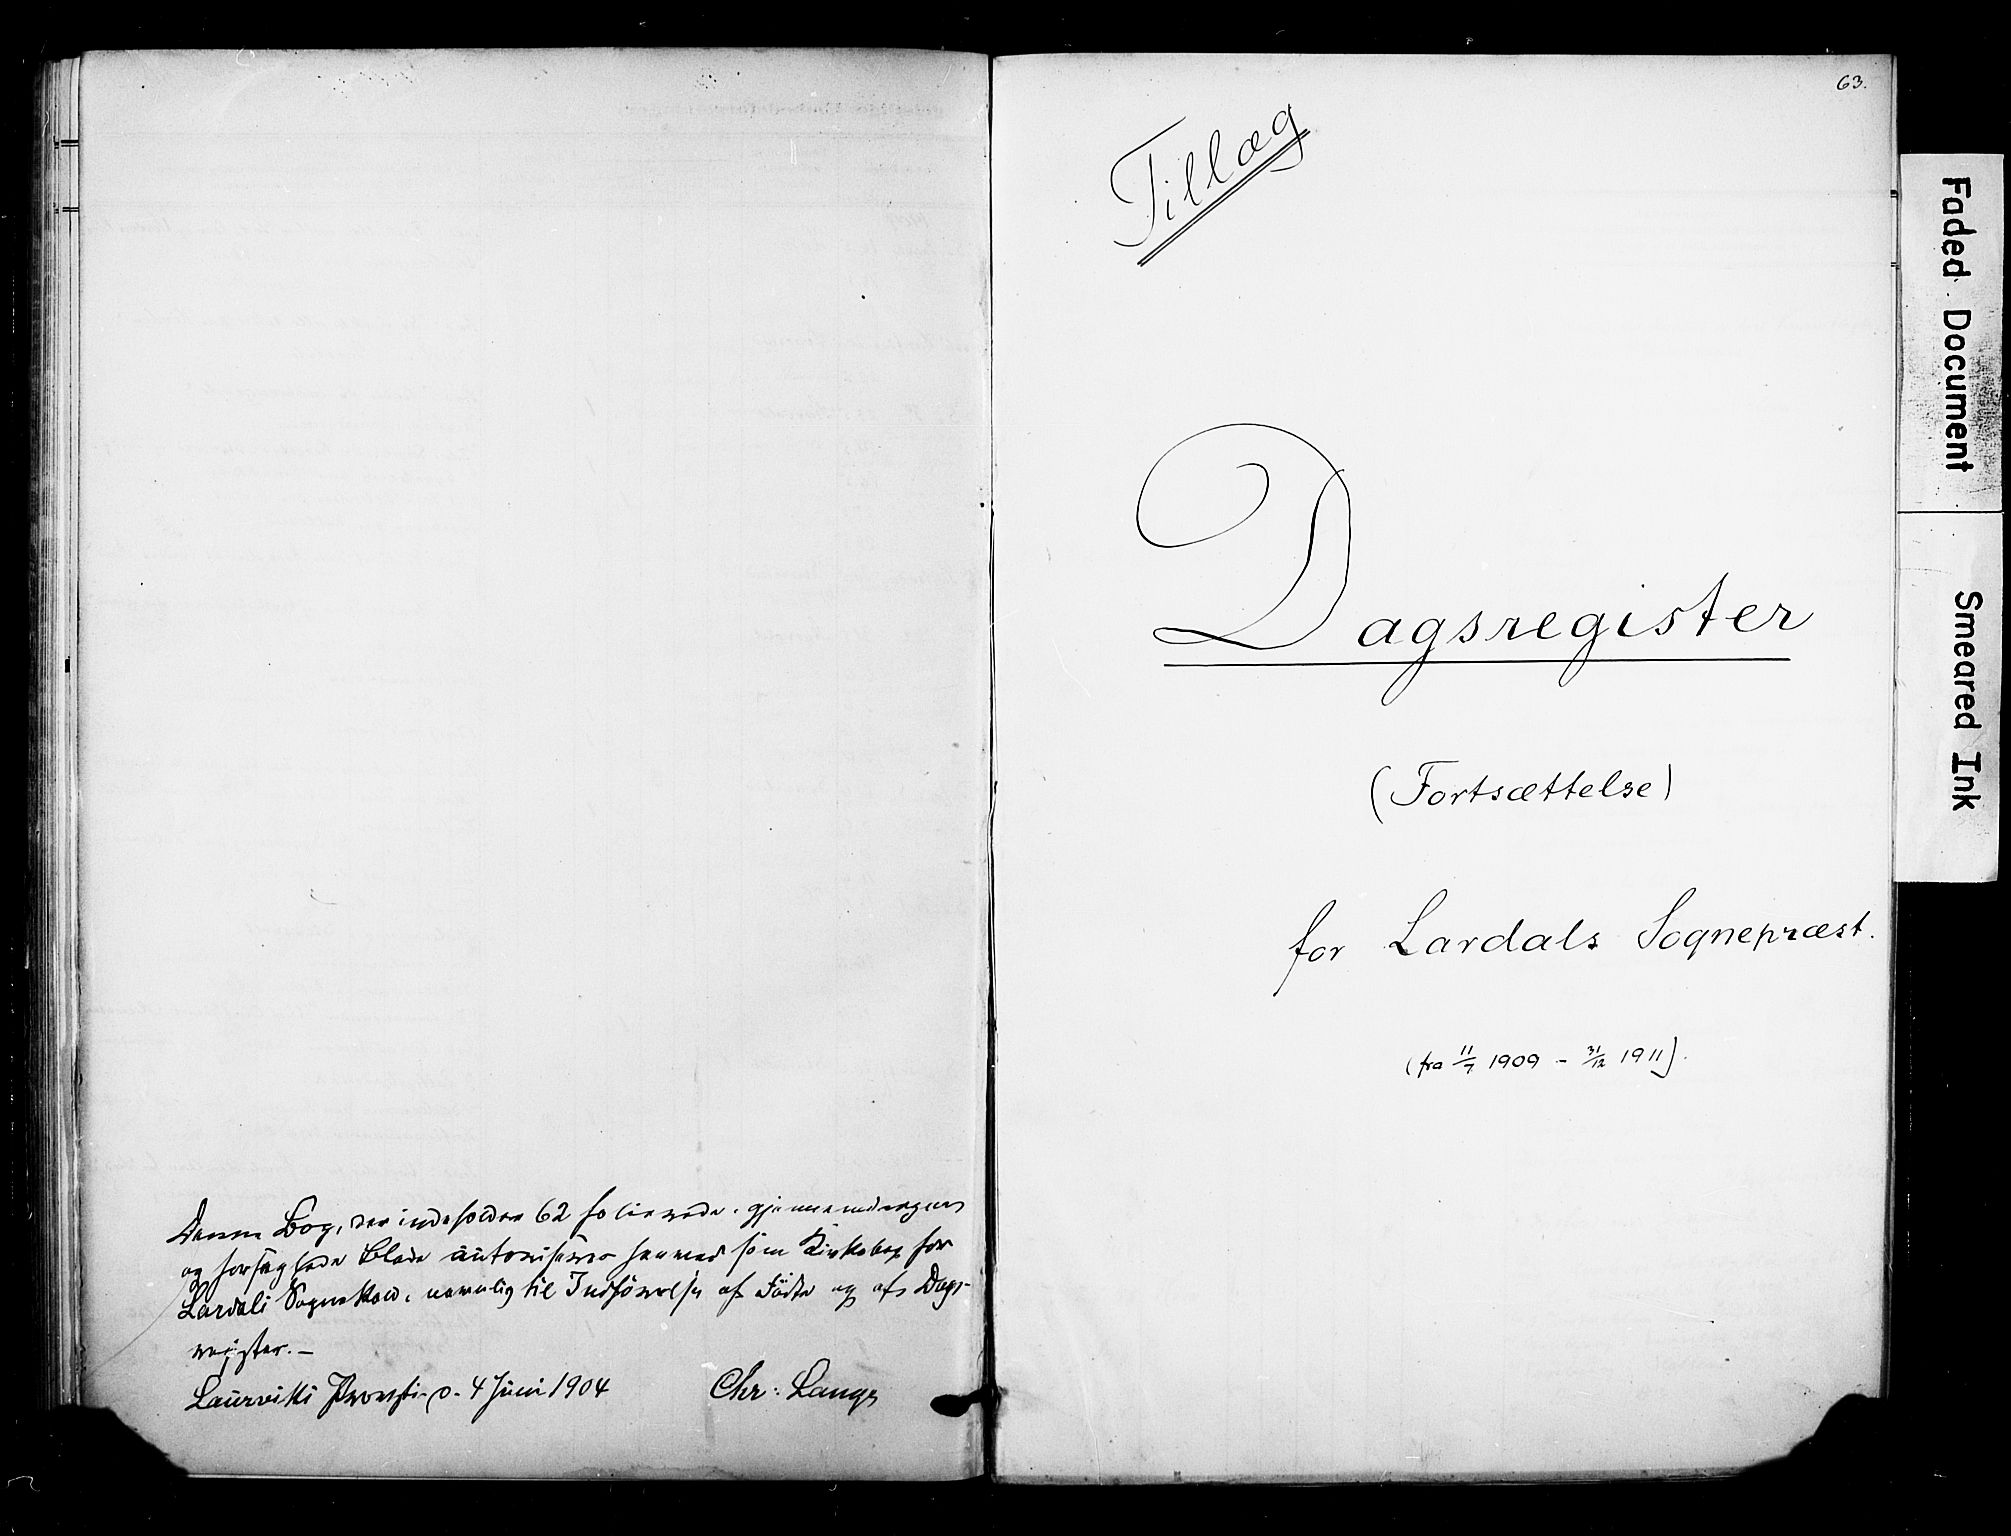 Denne Bog, der indeholder 62 folierede, gjennemdragne
og forseglede Blade autoriseres hermed som Kirkebog for
Lardals Sognekald, nemlig til Indførelse af Fødte og af Dags-
register. –
Laurviks Provsti d. 4 Juni 1904 Chr: Lange
63.
Tillæg
Dagsregister
(Fortsættelse)
for Lardals Sognepræst.
(fra 11/7 1909 – 31/12 1911).
Faded Document
Smeared Ink